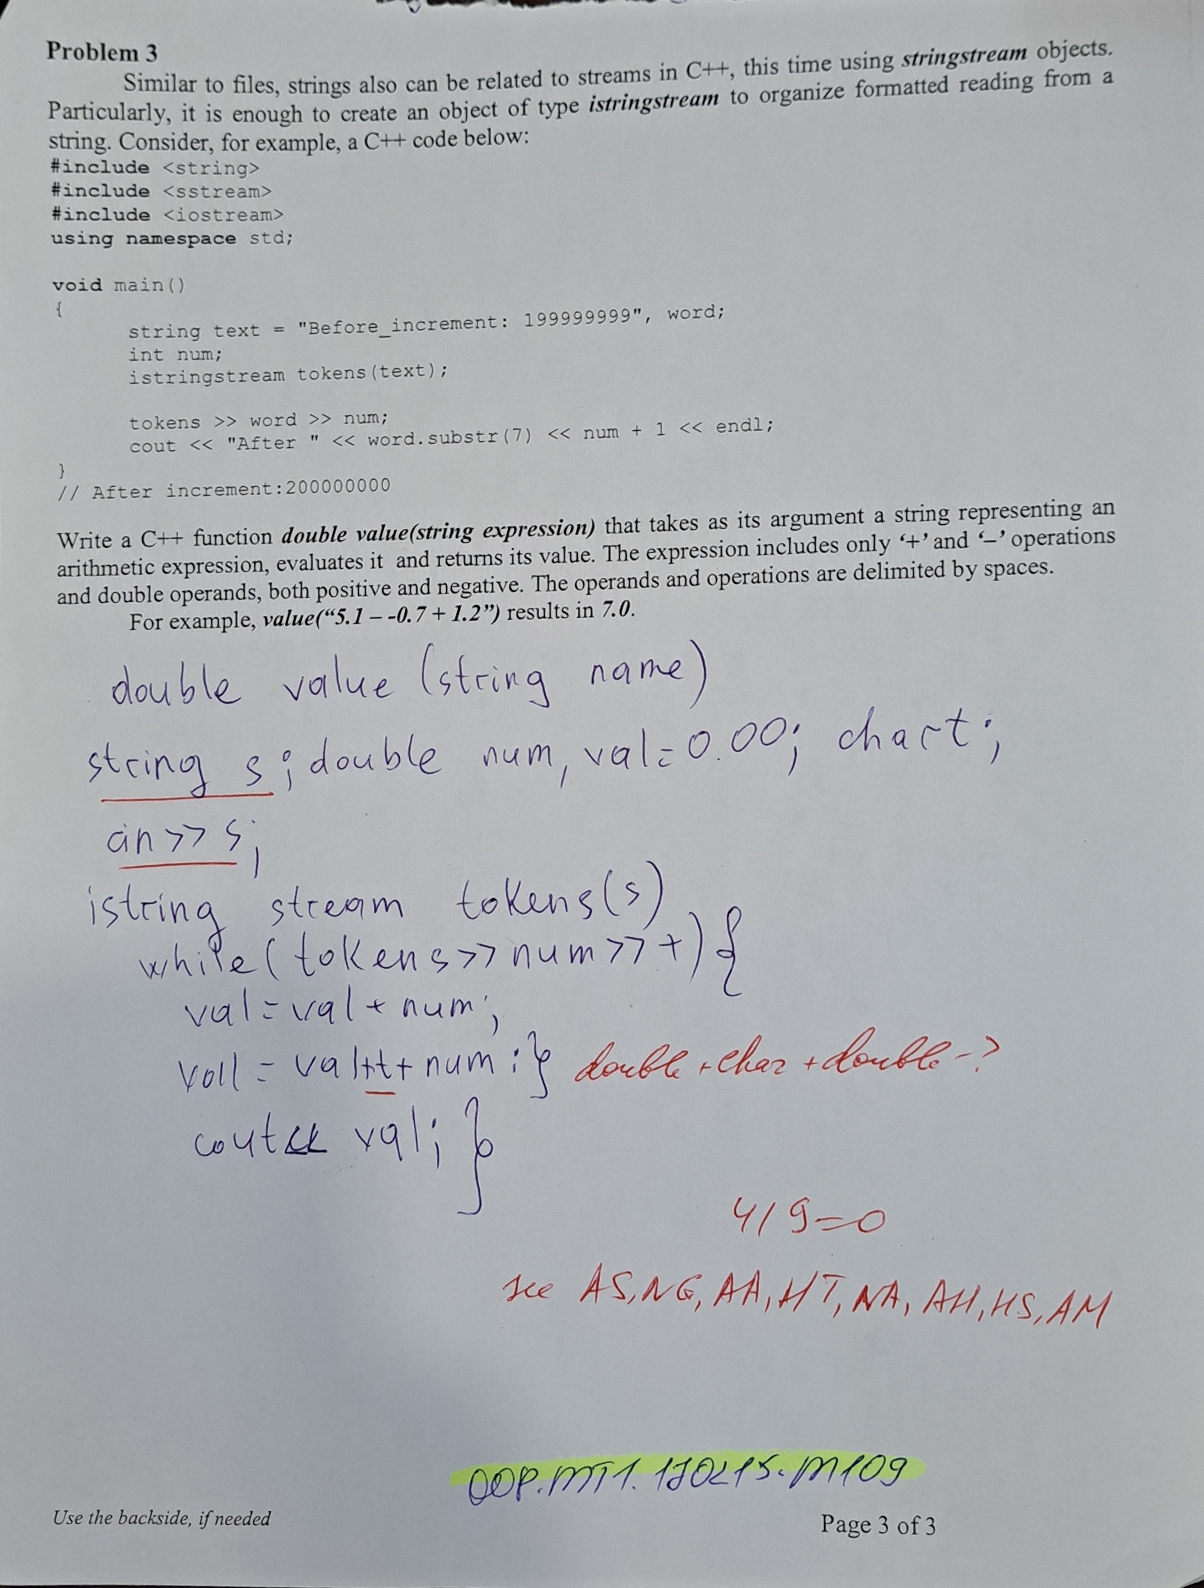 Problem 3
Similar to files, strings also can be related to streams in C++, this time using stringstream objects.
Particularly, it is enough to create an object of type istringstream to organize formatted reading from a
string. Consider, for example, a C++ code below:
#include <string>
#include <sstream>
#include <iostream>
using namespace std;
void main()
{
string text = "Before_increment: 199999999", word;
int num;
istringstream tokens(text);
tokens >> word >> num;
cout << "After " << word.substr(7) << num + 1 << endl;
}
// After increment:200000000
Write a C++ function double value(string expression) that takes as its argument a string representing an
arithmetic expression, evaluates it and returns its value. The expression includes only ‘+’ and ‘–’ operations
and double operands, both positive and negative. The operands and operations are delimited by spaces.
For example, value(“5.1 – -0.7 + 1.2”) results in 7.0.
double value (string name)
string s; double num, val=0.00; char t;
cin >> s;
istring stream tokens(s)
while(tokens>>num>>t){
val=val+num;
val = val+t+num;} double+char+double-?
cout<< val; }
4/9=0
see AS, NG, AA, HT, NA, AH, HS, AM
OOP.MT1.170215.M109
Use the backside, if needed
Page 3 of 3